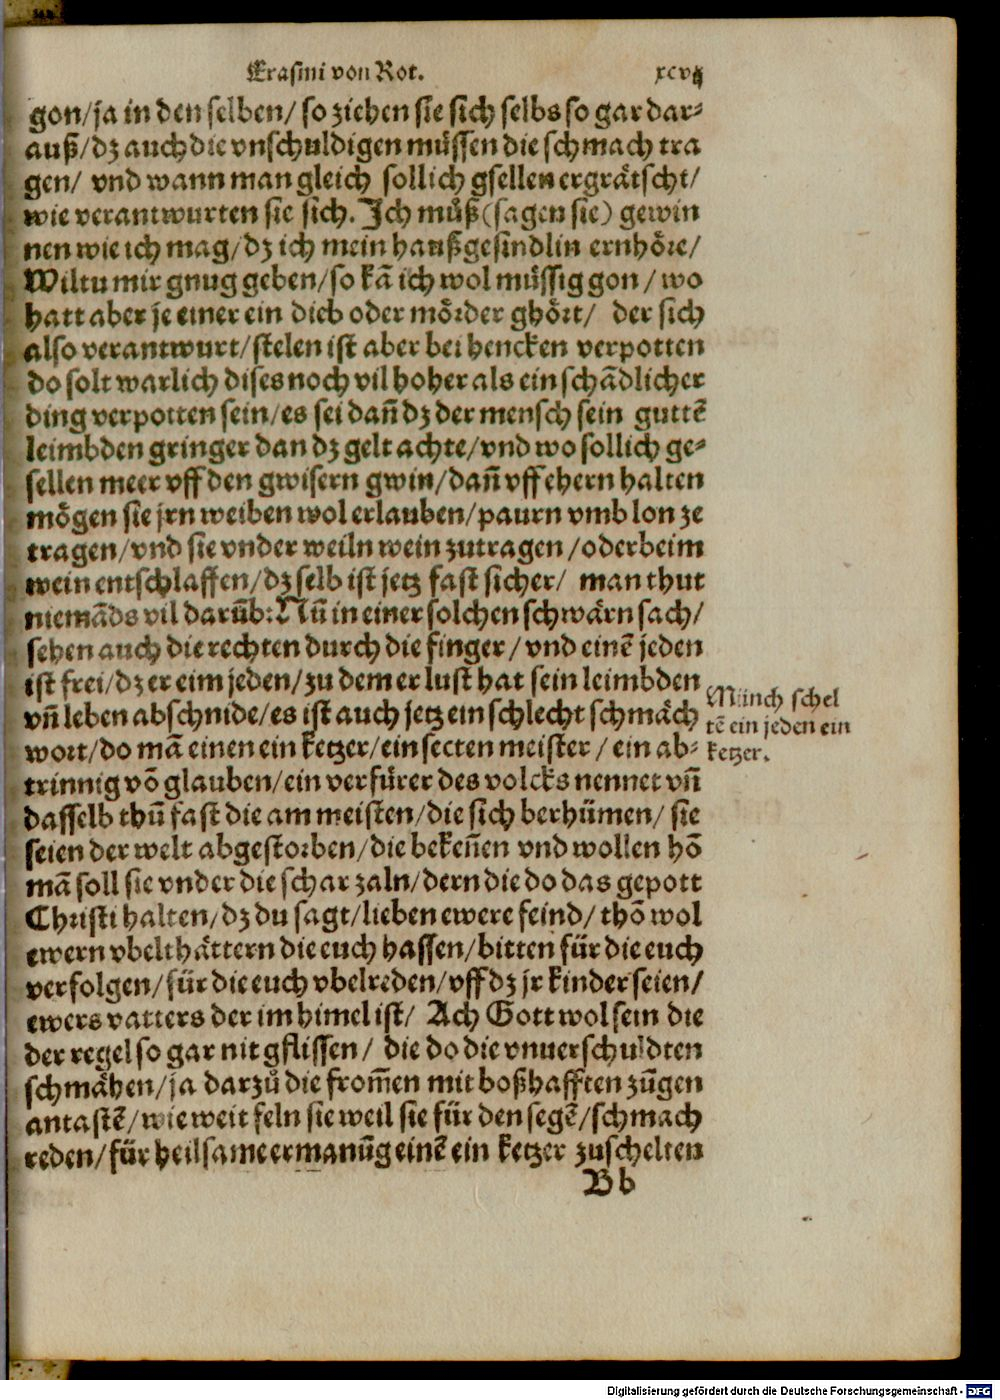 Erasmi von Rot. xcvij
gon/ja in den selben/ so ziehen sie sich selbs so gar dar⸗
auß/dz auch die vnschuldigen müssen die schmach tra
gen/ vnd wann man gleich sollich gsellen ergrätscht/
wie verantwurten sie sich. Ich můß (sagen sie) gewin
nen wie ich mag/dz ich mein haußgesindlin ernhöre/
Wiltu mir gnug geben/so kā ich wol müssig gon/ wo
hatt aber je einer ein dieb oder mörder ghört/ der sich
also verantwurt/stelen ist aber bei hencken verpotten
do solt warlich dises noch vil hoher als ein schādlicher
ding verpotten sein/es sei dañ dz der mensch sein guttē
leimbden gringer dan dz gelt achte/vnd wo sollich ge⸗
sellen meer vff den gwisern gwin/dañ vff ehern halten
mögen sie jrn weiben wol erlauben/paurn vmb lon ze
tragen/vnd sie vnder weiln wein zutragen/oder beim
wein entschlaffen/dz selb ist jetz fast sicher/ man thut
niemāds vil darūb: Nū in einer solchen schwärn sach/
sehen auch die rechten durch die finger/ vnd einē jeden
ist frei/dz er eim jeden/zu dem er lust hat sein leimbden
vñ leben abschnide/es ist auch jetz ein schlecht schmäch
wort/do mā einen ein ketzer/ein secten meister/ ein ab⸗
trinnig vō glauben/ein verfürer des volcks nennet vñ
dasselb thū fast die am meisten/die sich berhümen/ sie
seien der welt abgestorben/die bekeñen vnd wollen hō
mā soll sie vnder die schar zaln/dern die do das gepott
Christi halten/dz du sagt/lieben ewere feind/ thō wol
ewern vbelthättern die euch hassen/bitten für die euch
verfolgen/für die euch vbelreden/vff dz jr kinder seien/
ewers vatters der im himel ist/ Ach Gott wol sein die
der regel so gar nit gflissen/ die do die vnuerschuldten
schmähen/ja darzů die from̄en mit boßhafften zūgen
antastē/wie weit feln sie weil sie für den segē/schmach
reden/für heilsame ermanūg einē ein ketzer zuschelten
Münch schel
tē ein jeden ein
ketzer.
Bb
Digitalisierung gefördert durch die Deutsche Forschungsgemeinschaft - DFG